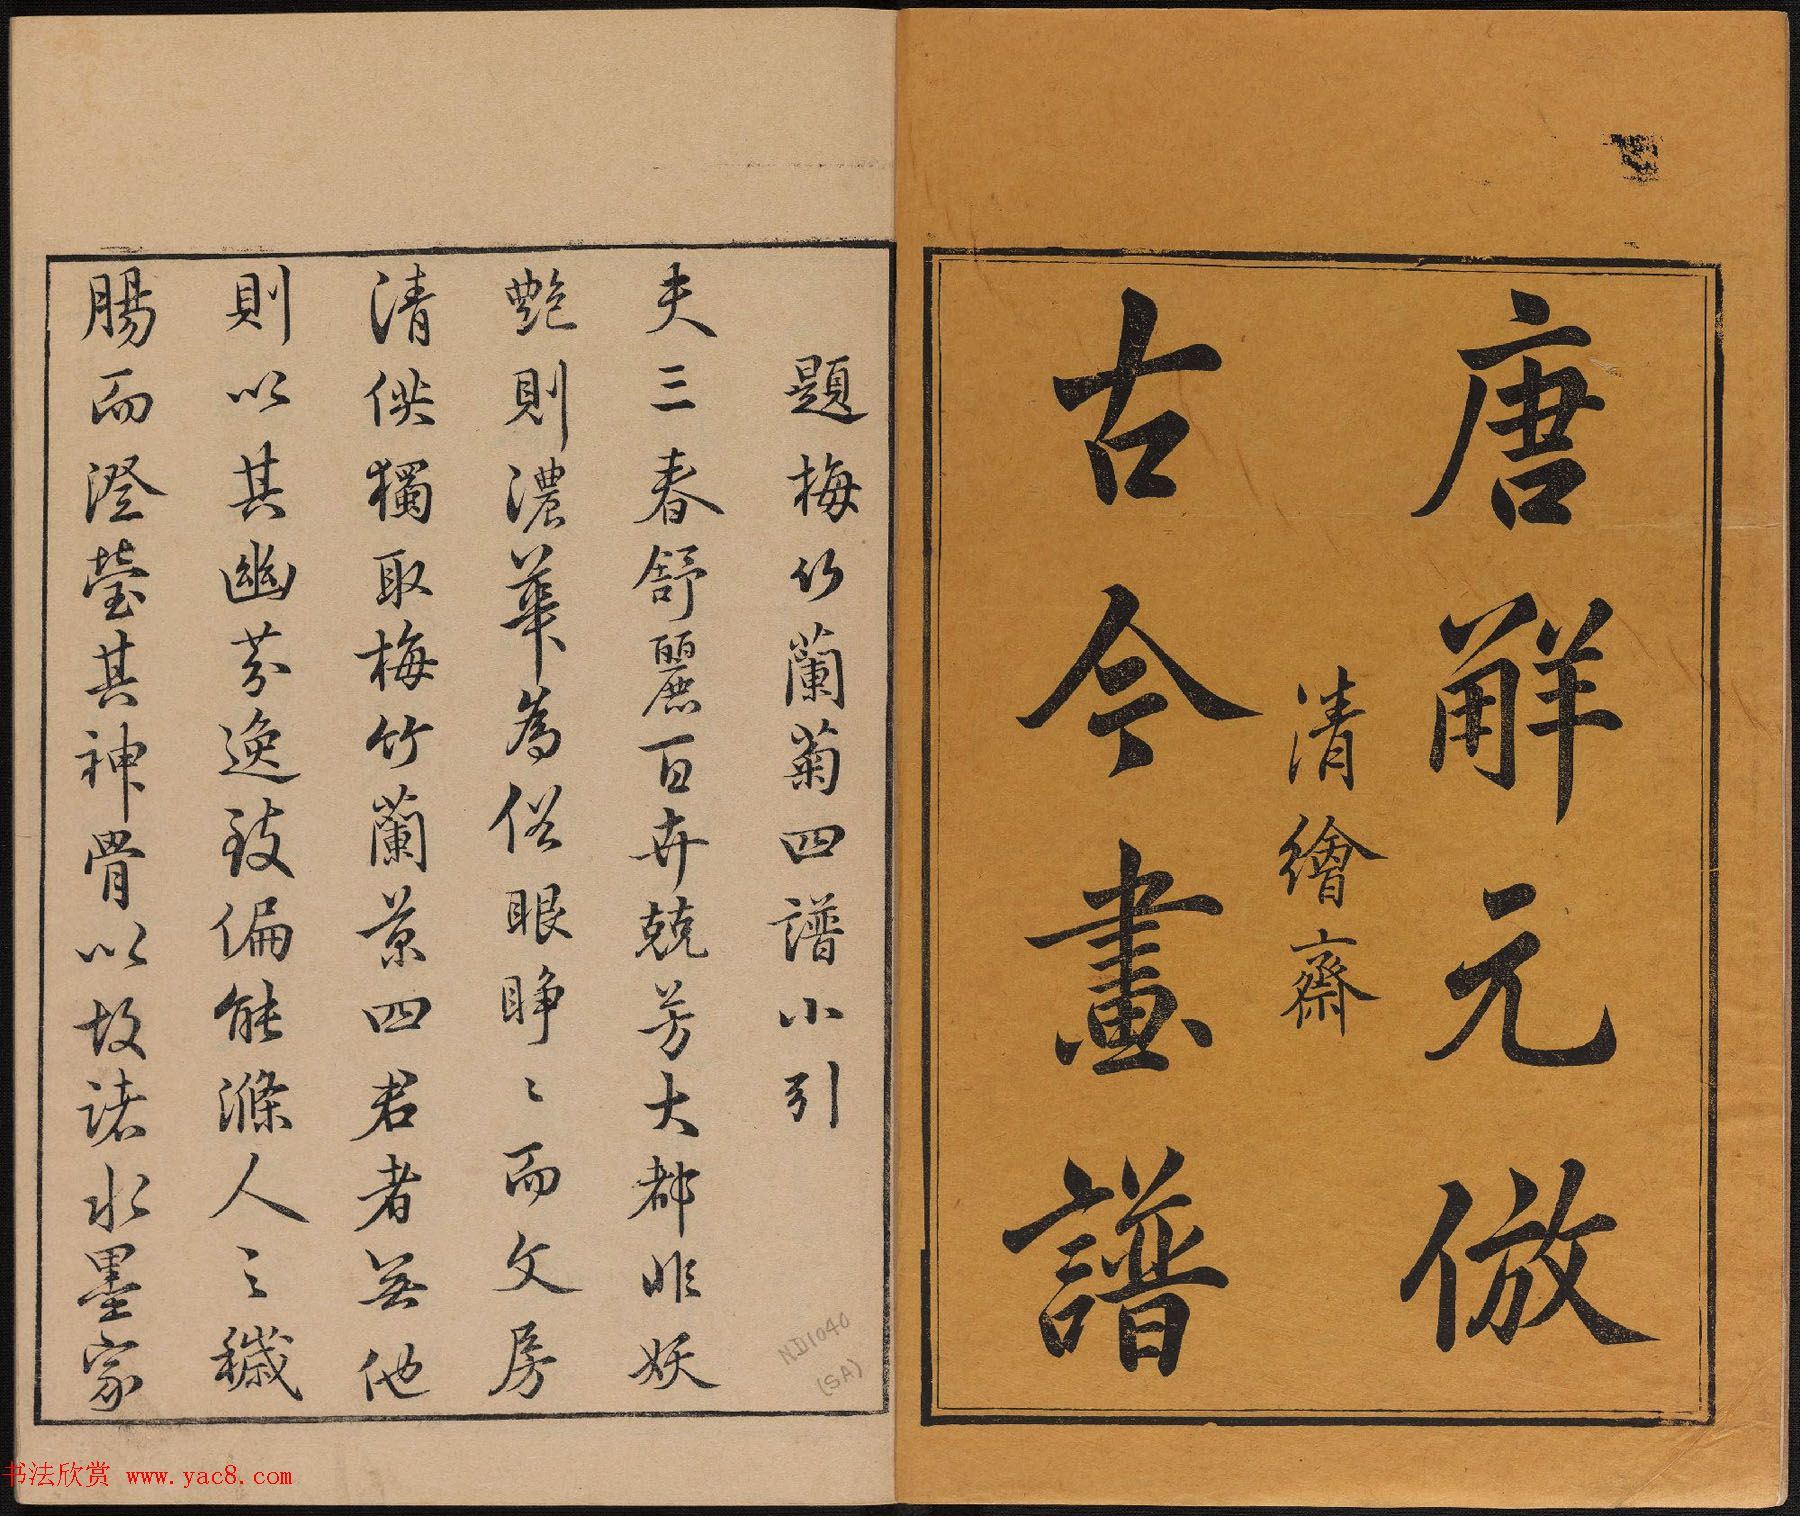 唐解元倣
清繪齋
古今畫譜
題梅竹蘭菊四譜小引
夫三春舒麗百卉兢芳大都非妖
艶則濃華為俗眼睜〻而文房
清供獨取梅竹蘭菊四君者無他
則以其幽芬逸致偏能滌人之穢
腸而澄瑩其神骨以故諸水墨家
ND1040
(SA)
书法欣赏 www.yac8.com